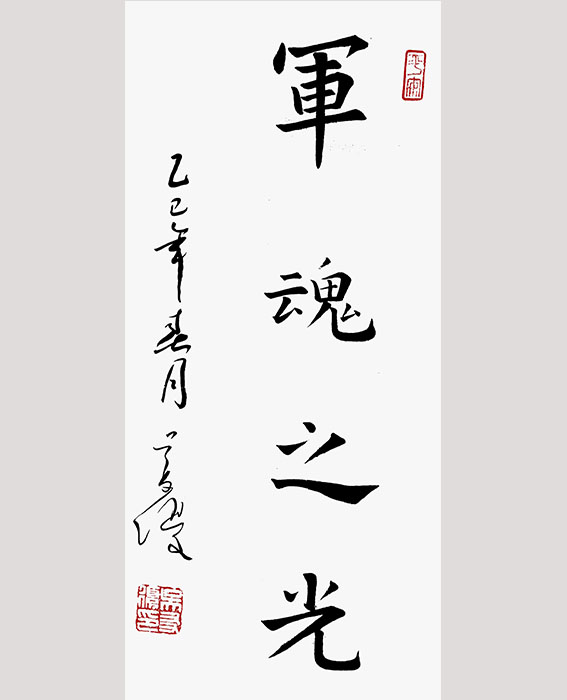 軍魂之光
乙巳年春月